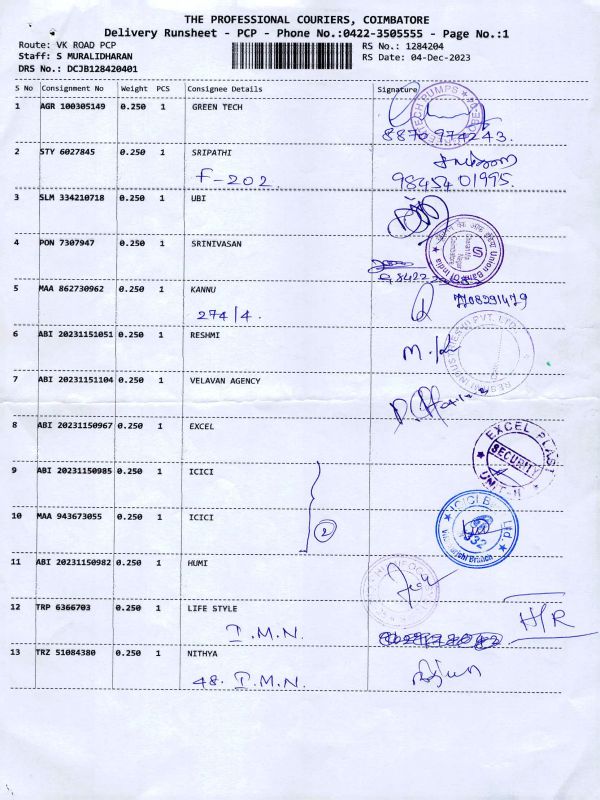 THE PROFESSIONAL COURIERS, COIMBATORE
Delivery Runsheet - PCP - Phone No.:0422-3505555 - Page No.:1
Route: VK ROAD PCP RS No.: 1284204
Staff: S MURALIDHARAN RS Date: 04-Dec-2023
DRS No.: DCJB128420401
S No Consignment No Weight PCS Consignee Details Signature
1 AGR 100305149 0.250 1 GREEN TECH
8870974243.
2 STY 6027845 0.250 1 SRIPATHI
F-202. 98454 01995.
3 SLM 334210718 0.250 1 UBI
4 PON 7307947 0.250 1 SRINIVASAN
Union Bank Of India
5 MAA 862730962 0.250 1 KANNU
274/4. 7708291479
6 ABI 20231151051 0.250 1 RESHMI
7 ABI 20231151104 0.250 1 VELAVAN AGENCY
8 ABI 20231150967 0.250 1 EXCEL
EXCEL PLAST
SECURITY
UNIT-II
9 ABI 20231150985 0.250 1 ICICI
10 MAA 943673055 0.250 1 ICICI
2
ICICI Ltd
Branch
11 ABI 20231150982 0.250 1 HUMI
12 TRP 6366703 0.250 1 LIFE STYLE
I.M.N. H/R
13 TRZ 51084380 0.250 1 NITHYA
48. I.M.N.